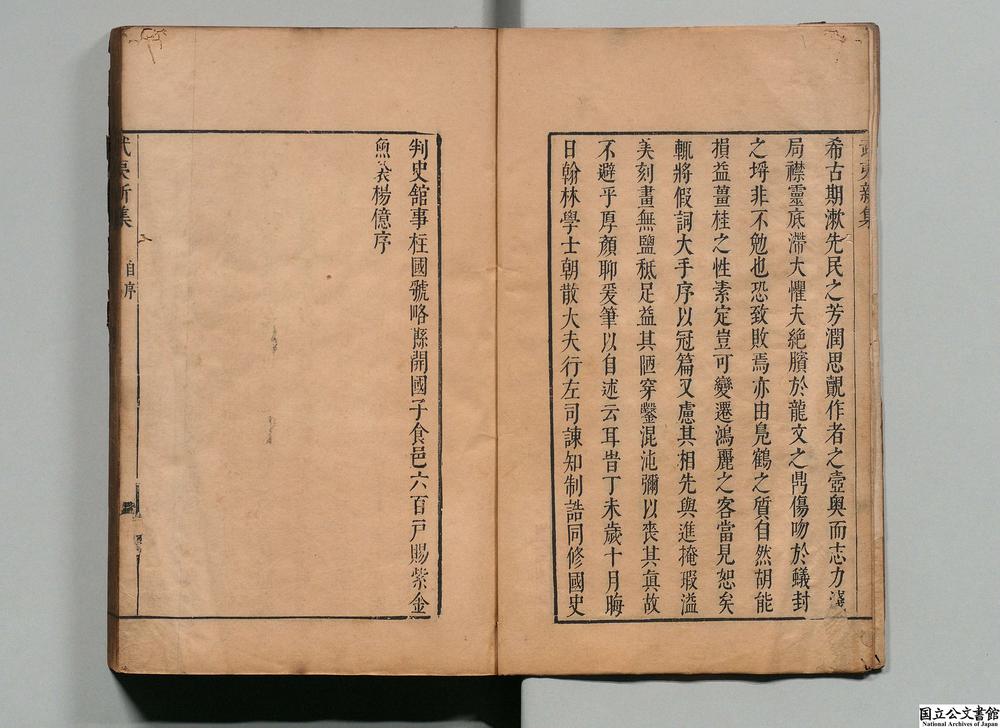 武夷新集
希古期漱先民之芳潤思覿作者之壼奥而志力
局襟靈底滯大懼夫絶臏於龍文之鼎傷吻於蟻封
之垤非不勉也恐致敗焉亦由鳧鶴之質自然胡能
損益薑桂之性素定豈可變遷鴻麗之客當見恕矣
輒將假詞大手序以冠篇又慮其相先與進掩瑕溢
美刻畫無鹽秪足益其陋穿鑿混沌彌以喪其眞故
不避乎厚顔聊爰筆以自述云耳昔丁未歲十月晦
日翰林學士朝散大夫行左司諫知制誥同修國史
判史舘事柱國虢略縣開國子食邑六百戸賜紫金
魚袋楊億序
武夷新集
自序
国立公文書館
National Archives of Japan